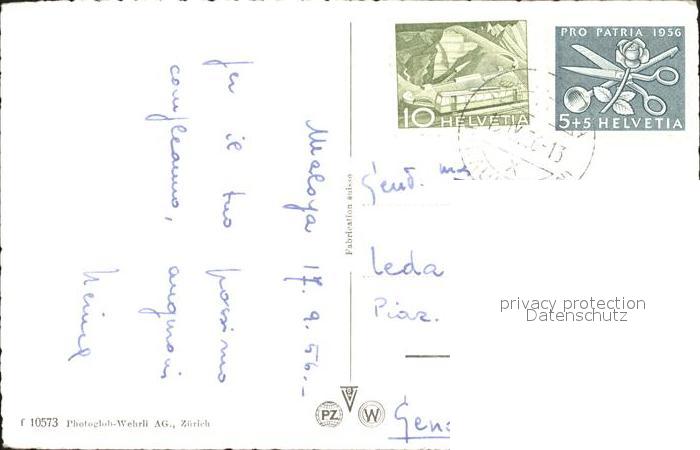 Maloja 17. 9. 56.-
Per il tuo prossimo
compleanno, auguroni
PRO PATRIA 1956
10 HELVETIA
5+5 HELVETIA
Gent.
Leda
Piaz.
Fabrication suisse
privacy protection
Datenschutz
PZ
W
f 10573 Photoglob-Wehrli AG., Zürich